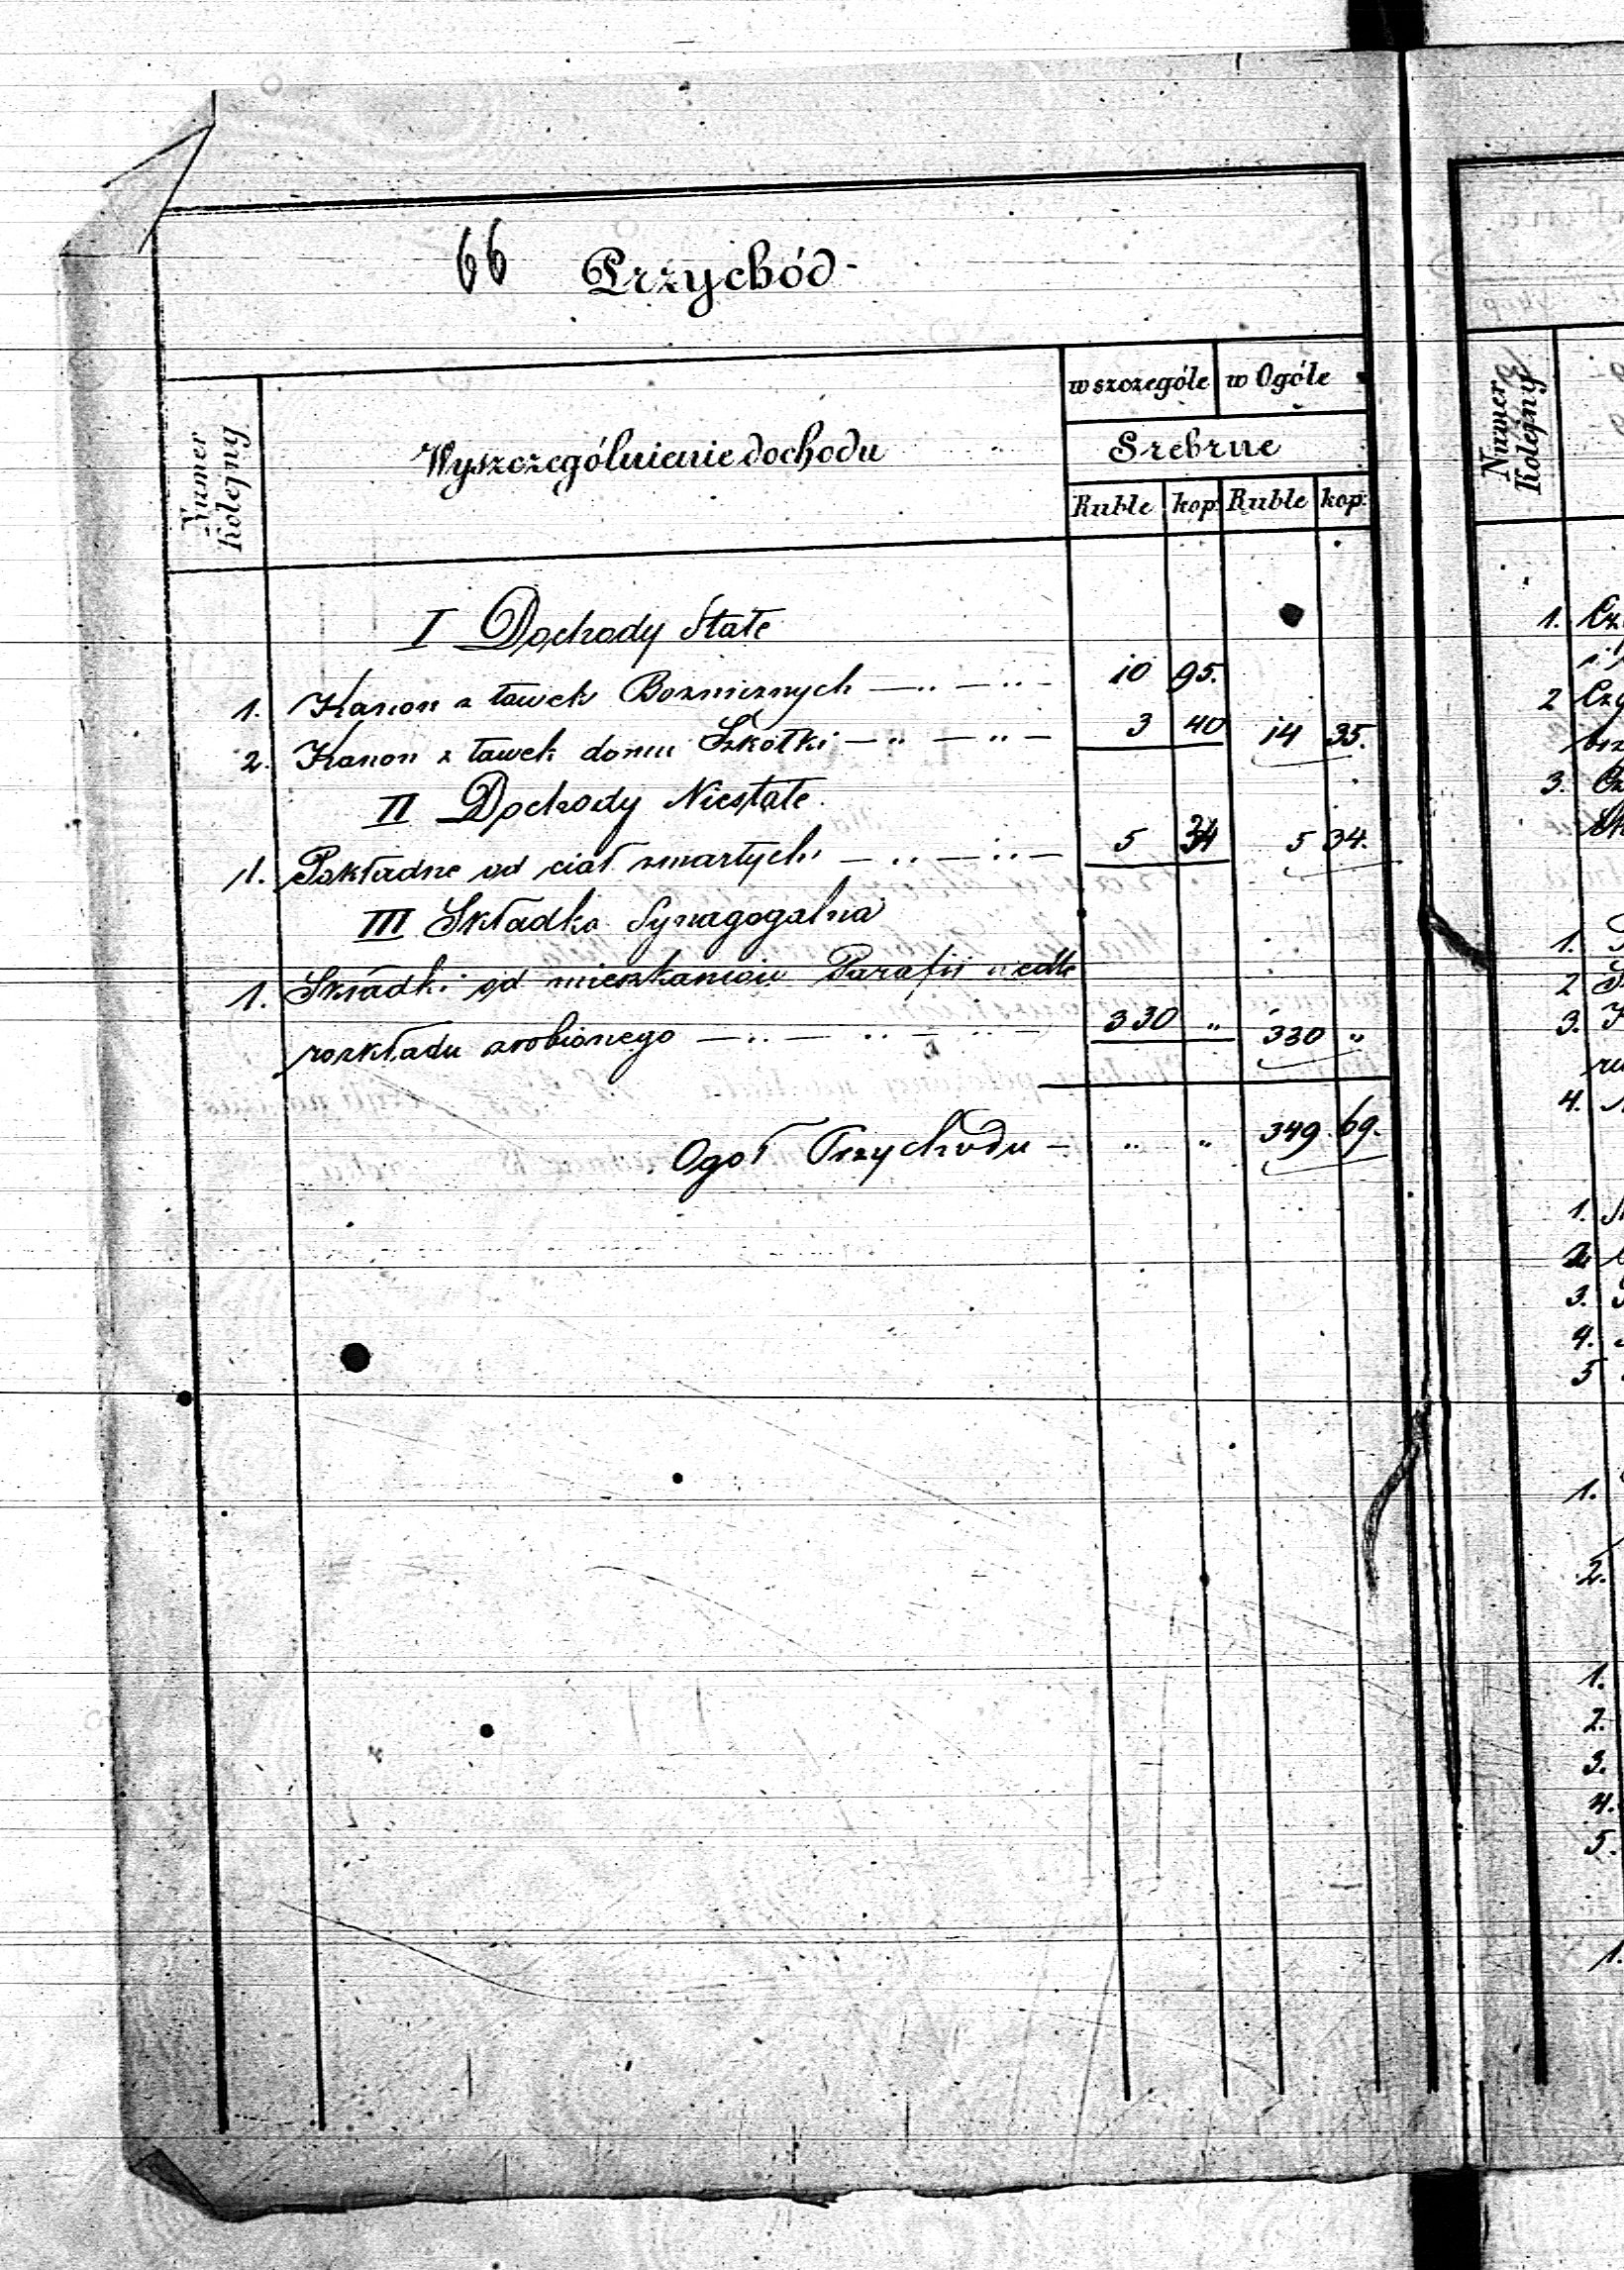 66 Przychód
Numer Kolejny
Wyszczególnienie dochodu
w szczególe w Ogóle
Srebrne
Ruble kop. Ruble kop.
I Dochody Stałe
1. Kanon z ławek Bożniznych — „ — „ — 10 95.
2. Kanon z ławek domu Szkółki — „ — „ — 3 40 14 35.
II Dochody Niestałe.
1. Pokładne od ciał zmarłych — „ — „ — 5 34 5 34.
III Składka Synagogalna
1. Składki od mieszkańców Parafii wedle
rozkładu zrobionego — „ — „ — „ — 330 „ 330 „
Ogół Przychodu — „ „ 349. 69.
Numer Kolejny
1.
2
3.
1.
2
3.
4.
1.
2.
3.
4.
5
1.
2.
1.
2.
3.
4.
5.
1.